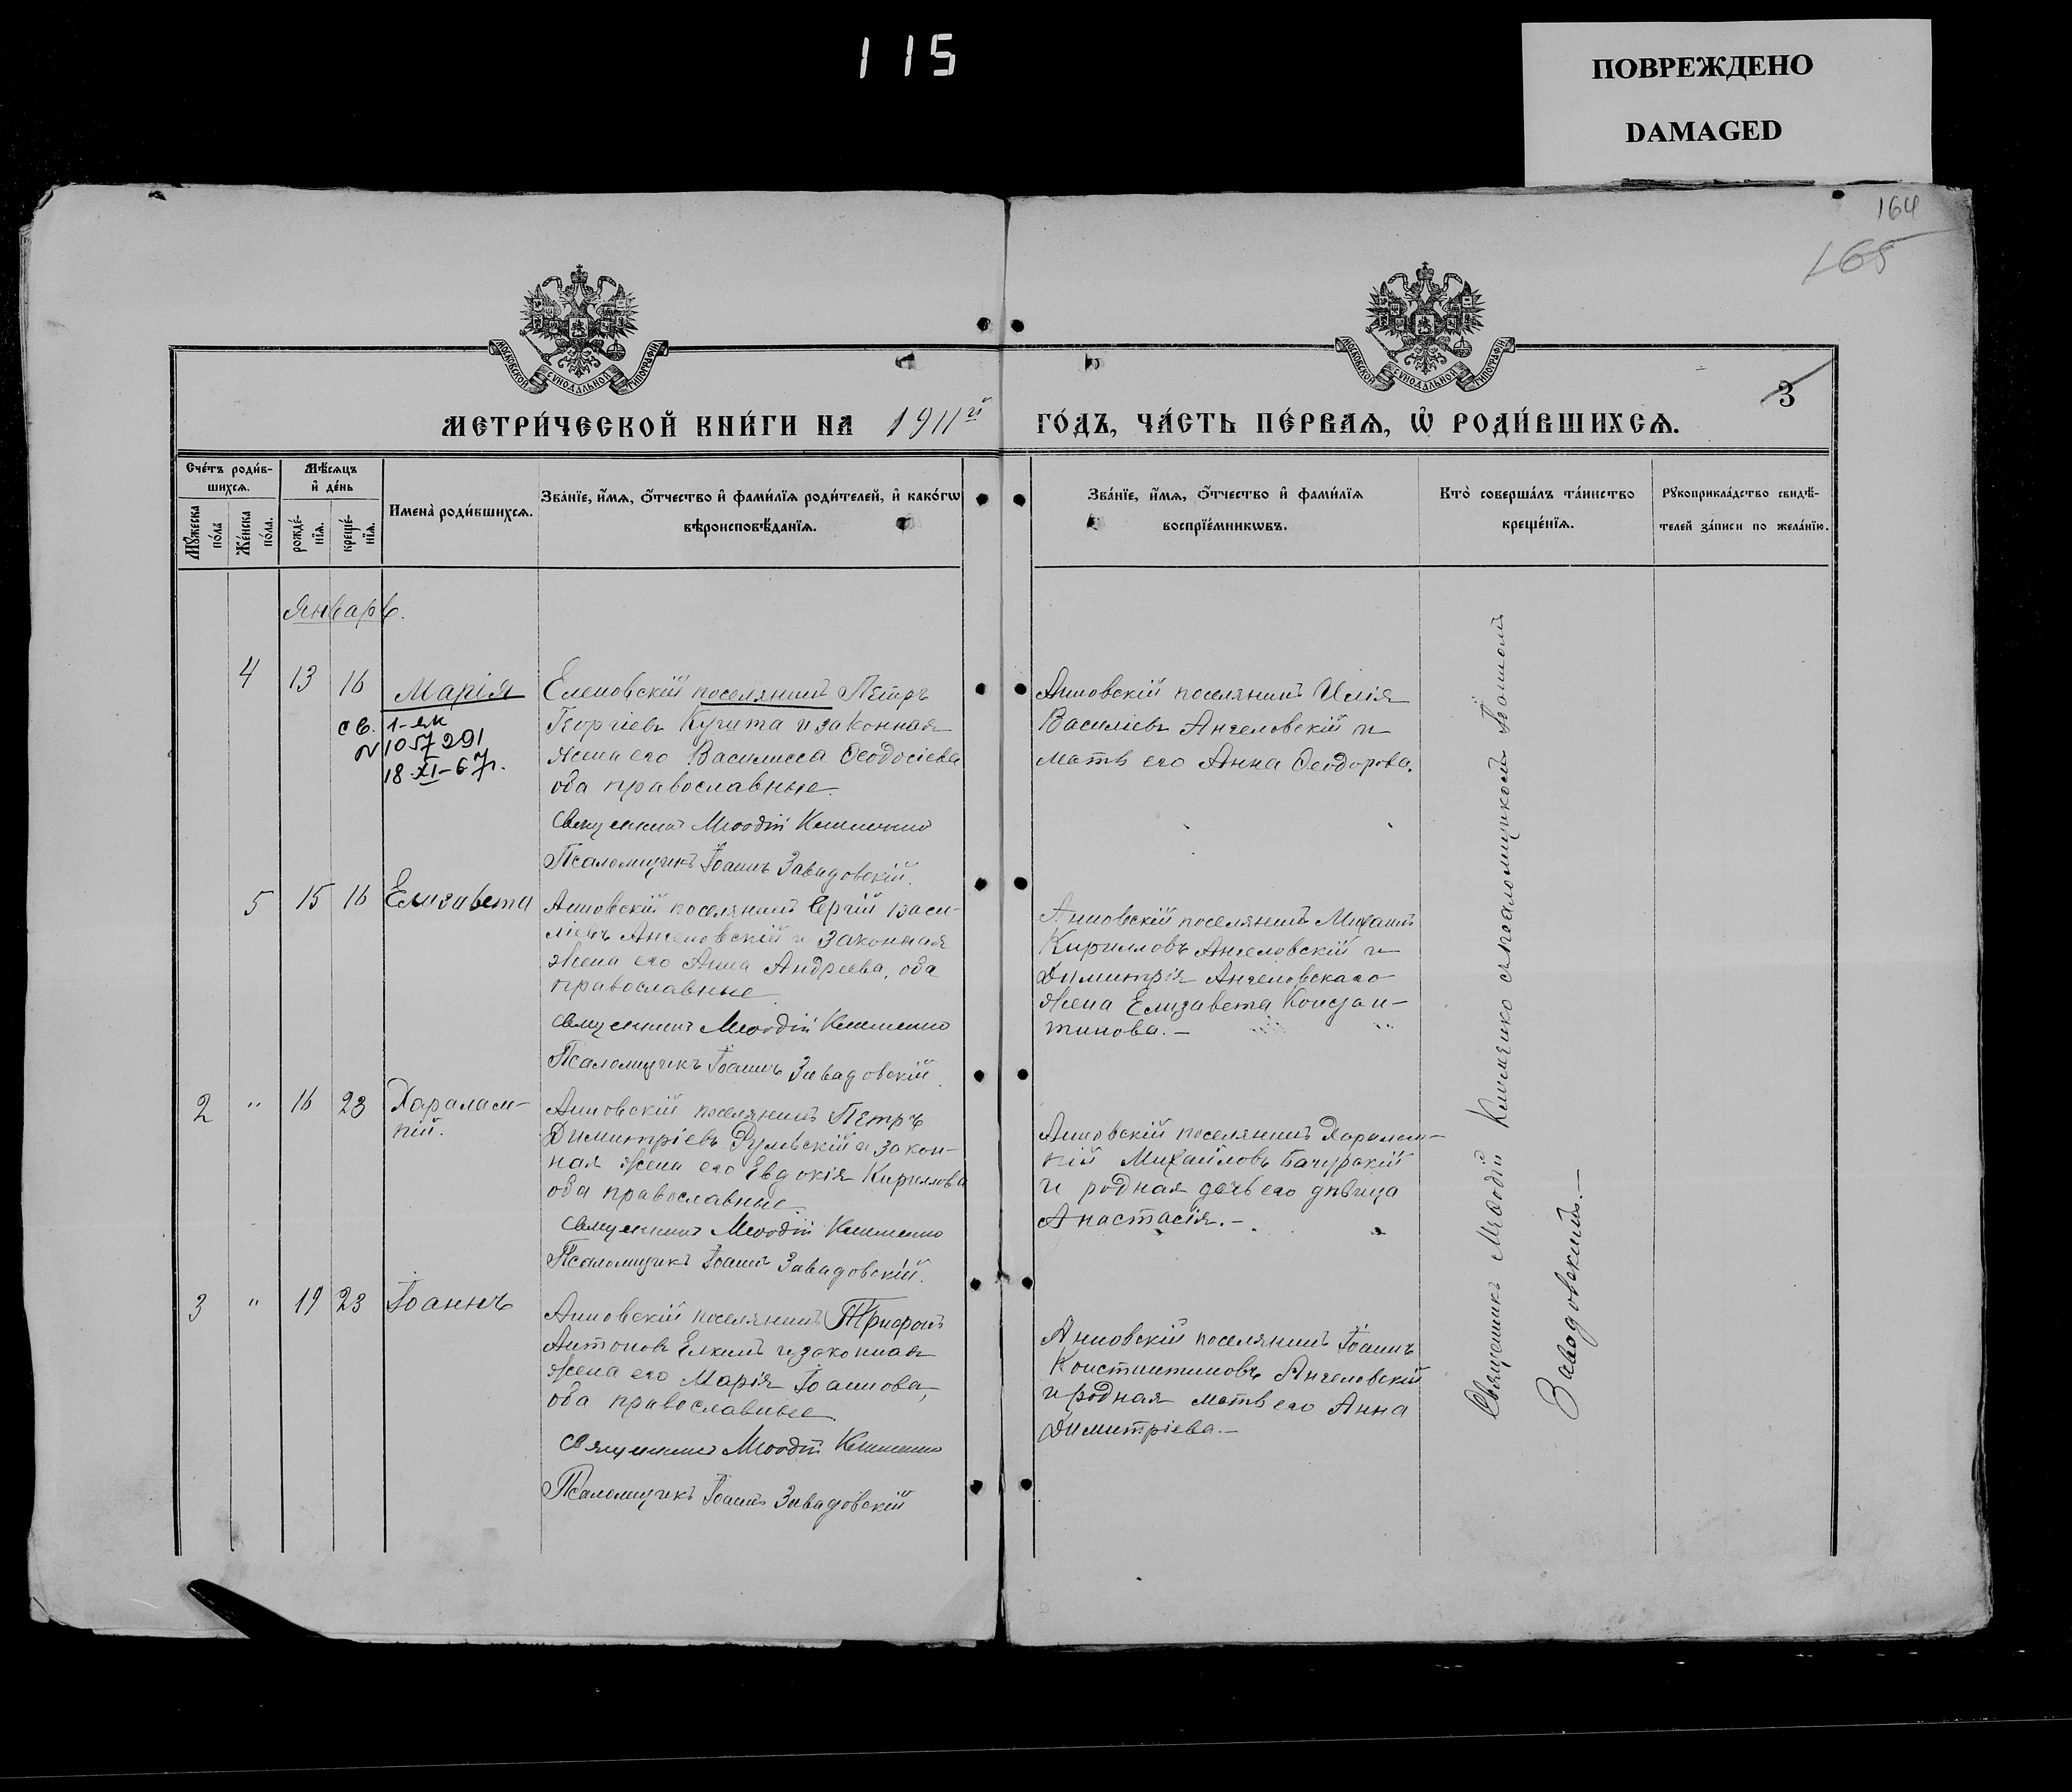 115
ПОВРЕЖДЕНО
DAMAGED
164
165
МОСКОВСКОЙ СѴНОДАЛЬНОЙ ТИПОГРАФІИ
МОСКОВСКОЙ СѴНОДАЛЬНОЙ ТИПОГРАФІИ
3
МЕТРИ́ЧЕСКОЙ КНИ́ГИ НА 1911й ГО́ДЪ, ЧА́СТЬ ПЕ́РВАѦ, Ѡ҆ РОДИ́ВШИХСѦ.
Сче́тъ роди́в-
шихсѧ.
Мꙋ́жеска по́ла
Же́нска по́ла.
Мѣ́сѧцъ и҆ де́нь
рожде́-
нїѧ.
креще́-
нїѧ.
Имена̀ роди́вшихсѧ.
Зва́нїе, и҆́мѧ, ѻ҆́тчество и҆ фами́лїѧ роди́телей, и҆ како́гѡ
вѣроисповѣ́данїѧ.
Зва́нїе, и҆́мѧ, ѻ҆́тчество и҆ фами́лїѧ
воспрїе́мникѡвъ.
Кто̀ соверша́лъ та́инство
креще́нїѧ.
Рꙋкоприкла́дство свидѣ́-
телей за́писи по жела́нїю.
Январь.
4 13 16 Марія
св. 1-ек
N 1057291
18-XI-67г.
Еленовскій поселянинъ Петръ
Георгіевъ Кучита и законная
жена его Василисса Ѳеодосіева
оба православные.
Священникъ Меѳодій Клименко
Псаломщикъ Іоаннъ Завадовскій.
Анновскій поселянинъ Илія
Василіевъ Ангеловскій и
мать его Анна Ѳеодорова.
5 15 16 Елизавета
Анновскій поселянинъ Сергій Васи-
ліевъ Ангеловскій и законная
жена его Анна Андреева, оба
православные
Священникъ Меѳодій Клименко
Псаломщикъ Іоаннъ Завадовскій.
Анновскій поселянинъ Михаилъ
Кирилловъ Ангеловскій и
Димитрія Ангеловскаго
жена Елизавета Констан-
тинова.—
2 " 16 23 Харалам-
пій.
Анновскій поселянинъ Петръ
Димитріевъ Рулевскій и закон-
ная жена его Евдокія Кириллова
оба православные
Священникъ Меѳодій Клименко
Псаломщикъ Іоаннъ Завадовскій.
Анновскій поселянинъ Харалам-
пій Михайловъ Бачурскій
и родная дочь его дѣвица
Анастасія.—
3 " 19 23 Іоаннъ
Анновскій поселянинъ Трифонъ
Антоновъ Елкинъ и законная
жена его Марія Іоаннова,
оба православные.
Священникъ Меѳодій Клименко
Псаломщикъ Іоаннъ Завадовскій
Анновскій поселянинъ Іоаннъ
Константиновъ Ангеловскій
и родная мать его Анна
Димитріева.—
Священникъ Меѳодій Клименко съ псаломщикомъ Іоанномъ
Завадовскимъ.—